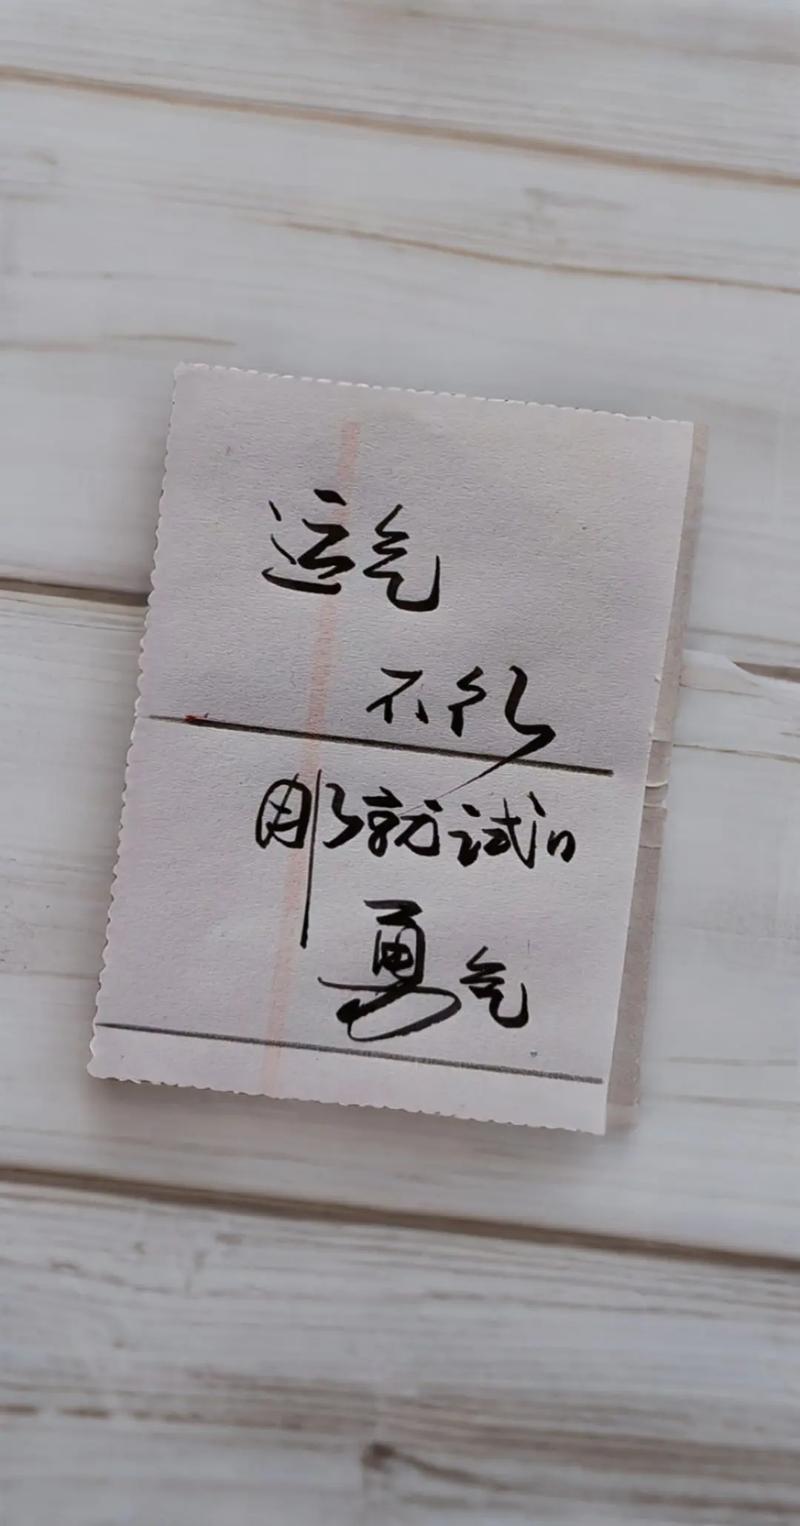 运气
不行
那就试试
勇气